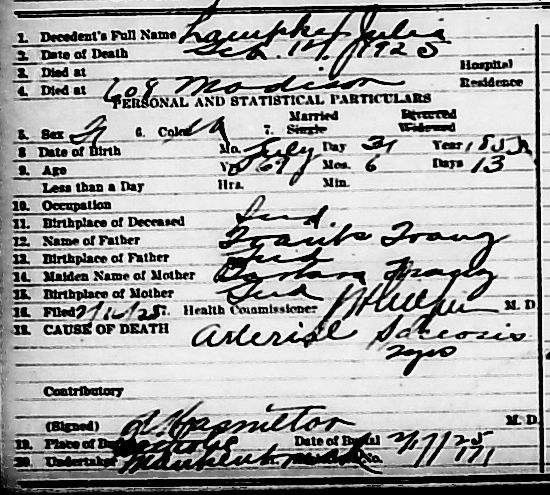 1. Decedent's Full Name Lampke, Julia
2. Date of Death Feb. 14, 1925
3. Died at Hospital
4. Died at 608 Madison Residence
PERSONAL AND STATISTICAL PARTICULARS
Married Divorced
5. Sex F 6. Color W 7. Single Widowed
8 Date of Birth Mo. July Day 31 Year 1855
9. Age Yr. 69 Mos. 6 Days 13
Less than a Day Hrs. Min.
10. Occupation
11. Birthplace of Deceased Ind
12. Name of Father Frank Franz
13. Birthplace of Father Ind
14. Maiden Name of Mother Barbara Franz
15. Birthplace of Mother Ind
16. Filed 2/16/25 17. Health Commissioner M. D.
18. CAUSE OF DEATH Arterial Sclerosis
Contributory
(Signed) Hamilton M. D.
19. Place of Burial Catholic Date of Burial 2/17/25
20. Undertaker No. 171